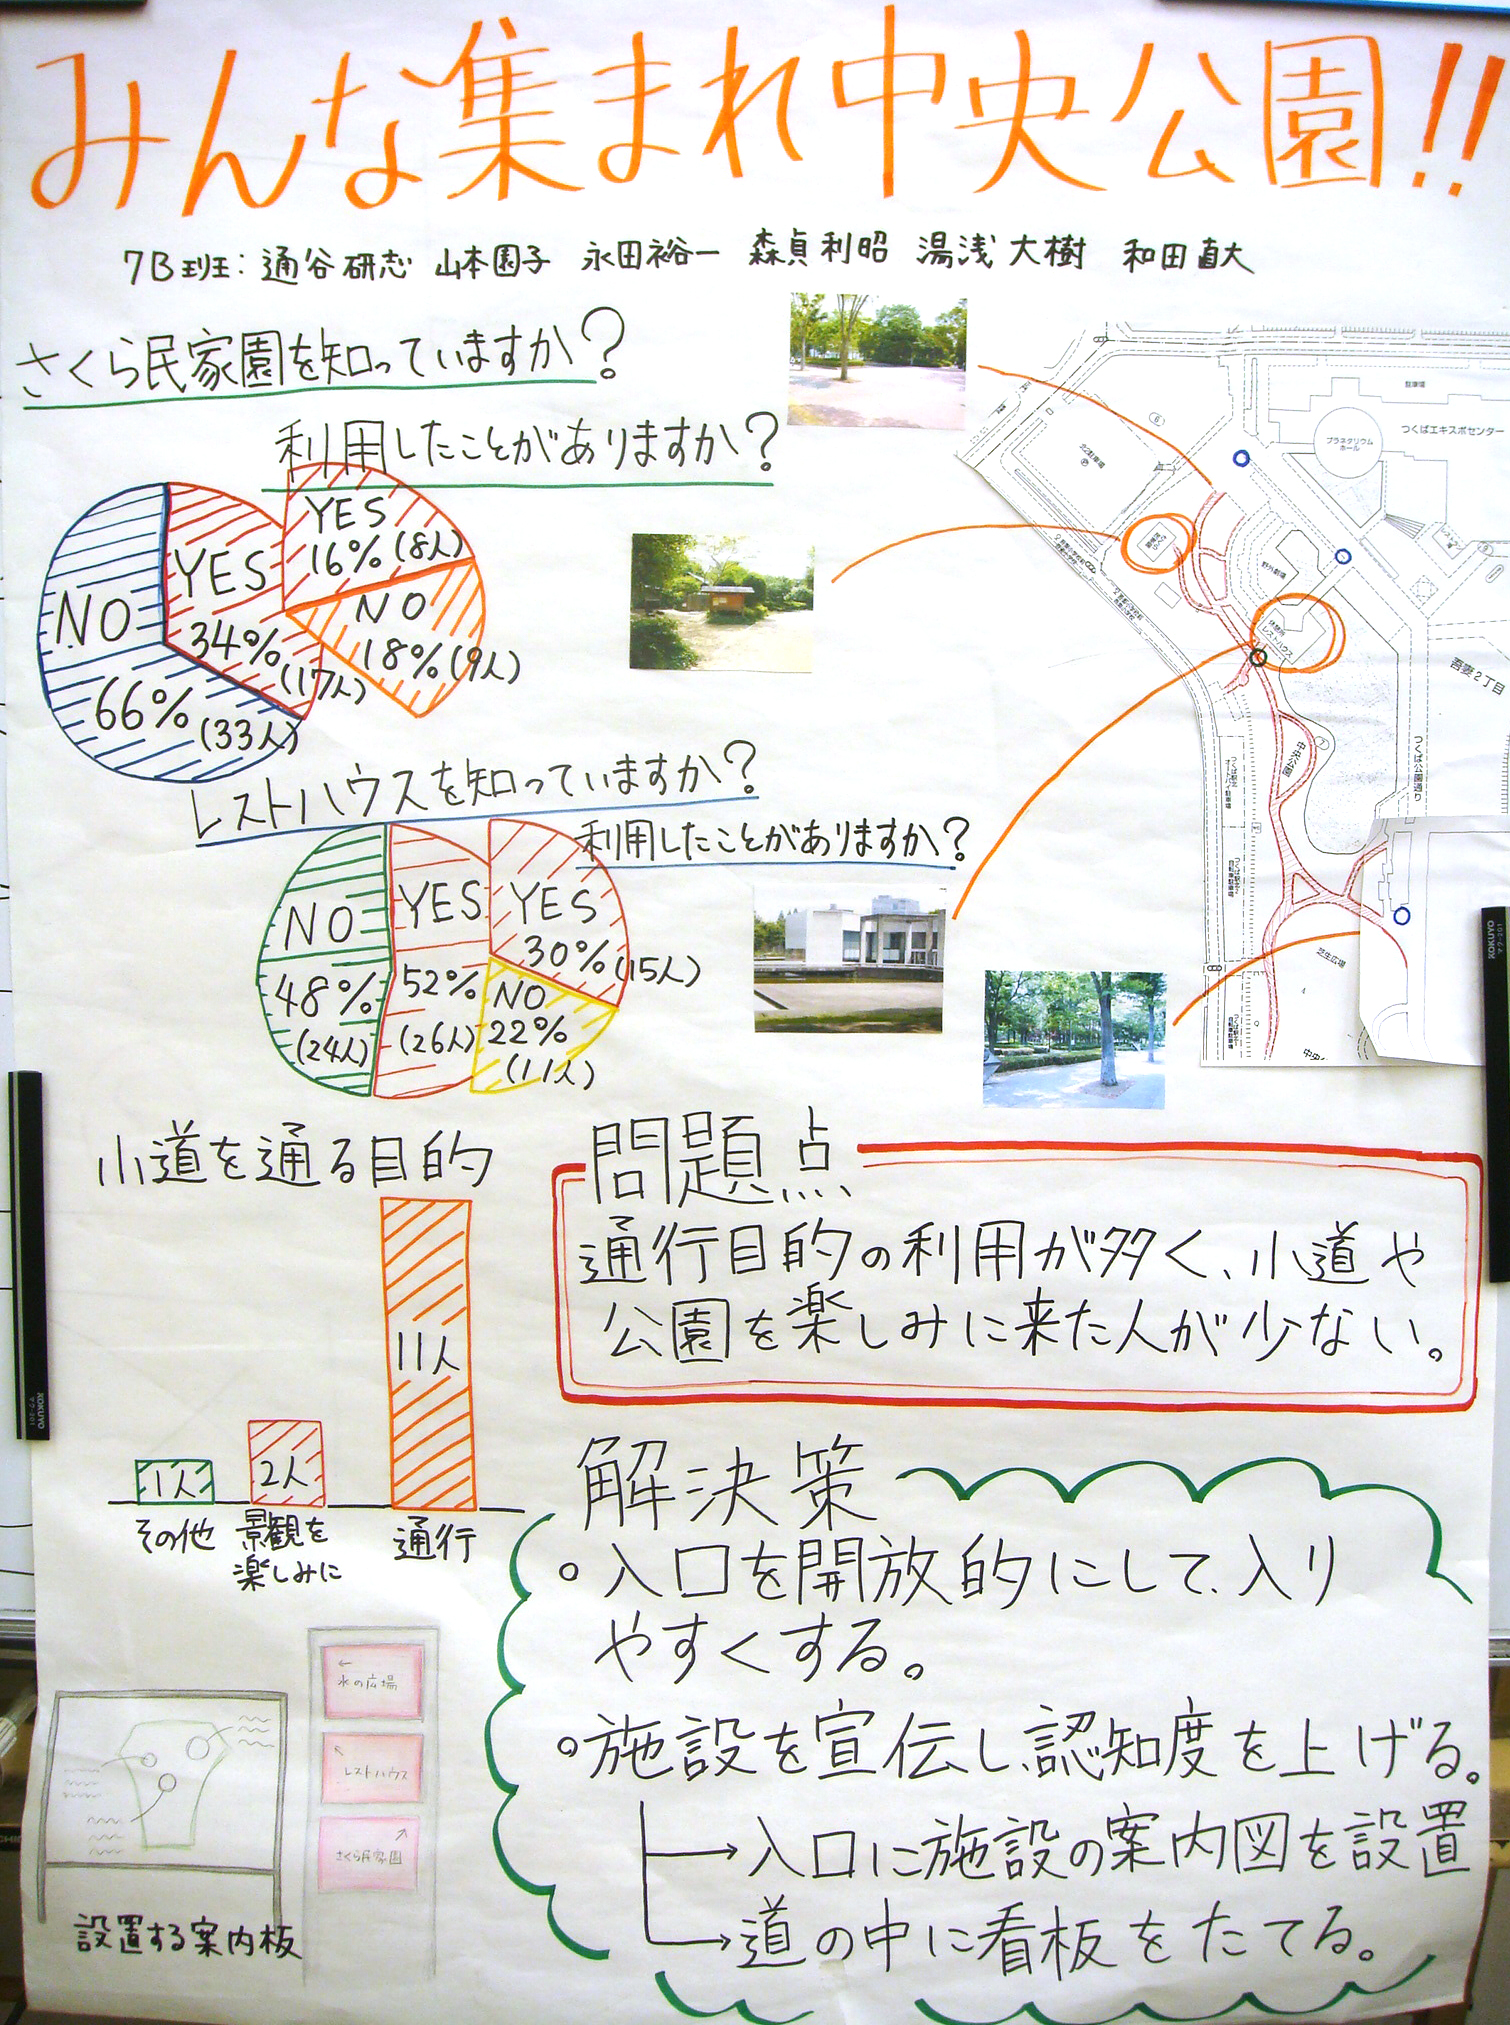 みんな集まれ中央公園!!
7B班：通谷研志 山本園子 永田裕一 森貞利昭 湯浅大樹 和田直大
さくら民家園を知っていますか？
利用したことがありますか？
YES
16%(8人)
NO
18%(9人)
YES
34%
(17人)
NO
66%
(33人)
レストハウスを知っていますか？
利用したことがありますか？
NO
48%
(24人)
YES
52%
(26人)
YES
30%(15人)
NO
22%
(11人)
駐車場
つくばエキスポセンター
プラネタリウム
ホール
北2駐車場
野外劇場
休憩所
レストハウス
吾妻2丁目
中央公園
つくば公園通り
芝生広場
小道を通る目的
11人
2人
1人
その他
景観を
楽しみに
通行
問題点
通行目的の利用が多く、小道や
公園を楽しみに来た人が少ない。
解決策
・入口を開放的にして、入り
やすくする。
・施設を宣伝し、認知度を上げる。
→入口に施設の案内図を設置
→道の中に看板をたてる。
←
水の広場
↖
レストハウス
↗
さくら民家園
設置する案内板
KOKUYO
マク-201
KOKUYO
マク-201